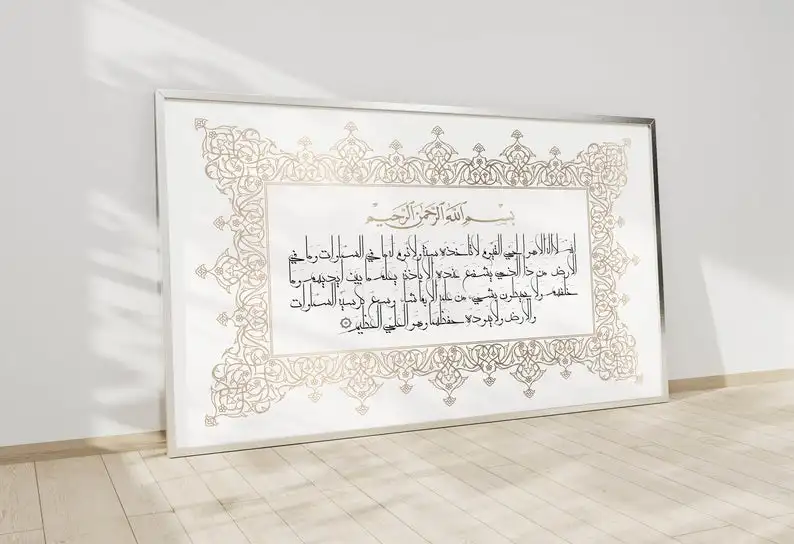 بِسْمِ ٱللَّهِ ٱلرَّحْمَٰنِ ٱلرَّحِيمِ
الله لا إله إلا هو الحي القيوم لا تأخذه سنة ولا نوم له ما في السماوات وما في
الأرض من ذا الذي يشفع عنده إلا بإذنه يعلم ما بين أيديهم وما
خلفهم ولا يحيطون بشيء من علمه إلا بما شاء وسع كرسيه السماوات
والأرض ولا يؤوده حفظهما وهو العلي العظيم